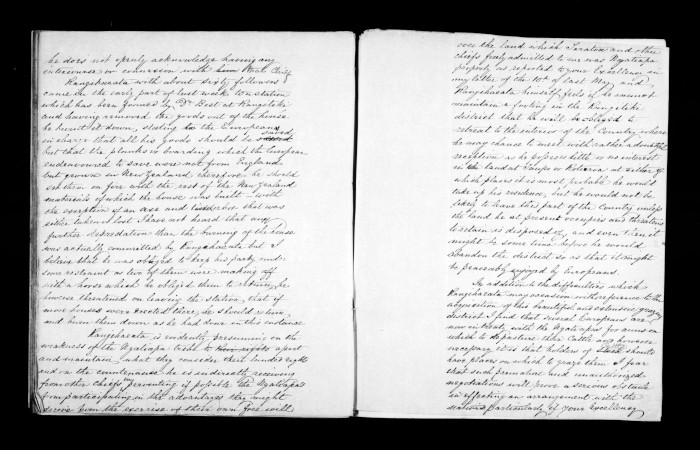 he does not openly acknowledge having any
intercourse or connexion with that Chief
Rangihaeata with about sixty followers
came on the early part of last week to a station
which has been formed by Dr Best at Rangiteke
and having removed the goods out of the house
he burnt it down, stating to the European
in charge that all his Goods should be saved
but that the planks or boarding which the European
endeavoured to save were not from England
but grown in New Zealand therefore he should
set them on fire with the rest of the New Zealand
materials of which the house was built - with
the exception of an axe and that was
either taken or lost I have not heard that any
further depredation than the burning of the house
was actually committed by Rangihaeata but I
believe that he was obliged to keep his party under
some restraint as two of them were making off
with a horse which he obliged them to return, he
however threatened on leaving the station, that if
more houses were erected there, he should return
and burn them down as he had done in this instance
Rangihaeata is evidently presuming on the
weakness of the Ngatiapa tribe to apart
and maintain what they consider their landed rights
and on the countenance he is indirectly receiving
from other chiefs my preventing if possible the Ngatiapa
from participating in the advantages they might
derive from the exercise of their own free will
over the land which Taratoa and other
chiefs freely admitted to me was Ngatiapa
property as related to your Excellency in
my letter of the 10th of last May, and
Rangihaeata himself feels if he cannot
maintain a footing in the Rangiteke
district that he will be obliged to
retreat to the interior of the Country where
he may chance to meet with rather a doubtful
reception as he possesses little or no interest
in the land at Taupo or Rotorua at either of
which places it is most probable he would
take up his residence, but he would not be
likely to leave this part of the Country unless
the land he at present occupies and threatens
to retain is disposed of, and even then it
might be some time before he would
abandon the district so as that it might
be peaceably enjoyed by Europeans.
In addition to the difficulties which
Rangihaeata may occasion with reference to the
acquisition of this beautiful and extensive grazing
district I find that several Europeans are
now in treaty with the Ngatiapa for runs on
which to depasture their Cattle and however
necessary it is that holders of Stock should
have places on which to graze them I fear
that such premature and unauthorized
negotiations will prove a serious obstacle
in effecting an arrangement with the
natives particularly if your Excellency